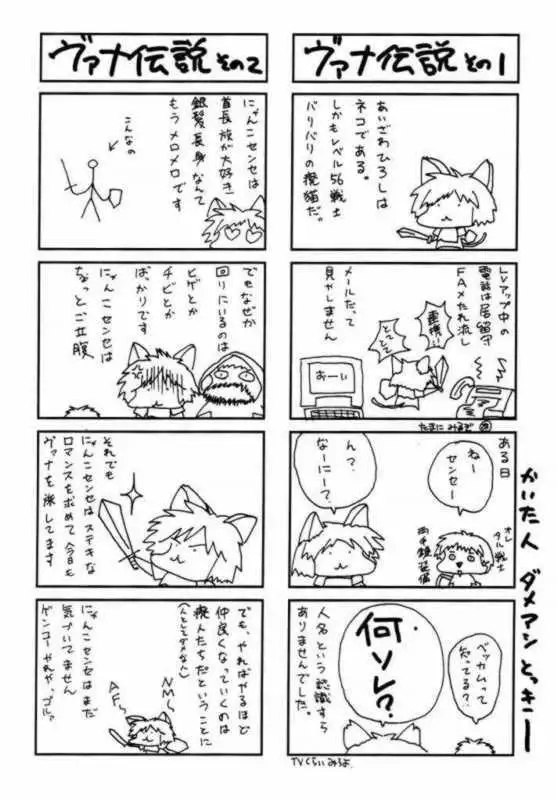 ヴァナ伝説 その1
あいざわひろしは
ネコである。
しかもレベル56戦士
バリバリの廃猫だ。
Lvアップ中の
電話は居留守
FAXたれ流し
メールだって
見やしません
連携!!
とてとて
とてとて
おーい
たまにみるぞ
ある日
ねー
センセー
ん?
なーにー?
オレ
タル戦士
両手鎌装備
ベッカムって
知ってる?
何ソレ?
人名という認識すら
ありませんでした。
TVくらいみろよ
ヴァナ伝説 その2
にゃんこセンセは
首長族が大好き
銀髪長身なんて
もうメロメロです
こんなの
でもなぜか
回りにいるのは
ヒゲとか
チビとか
ばかりです
にゃんこセンセは
ちょっとご立腹
それでも
にゃんこセンセはステキな
ロマンスを求めて今日も
ヴァナを旅してます
でも、やればやるほど
仲良くなっていくのは
廃人たちだということに
(人としてダメな人)
にゃんこセンセはまだ
気づいてません
ゲンコーやれや、ゴルァ
NM〜
AF〜
かいた人 ダメアシとっきー